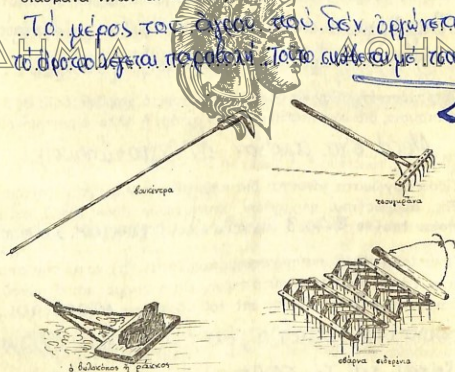 Τό μέρος τοῦ ἀγροῦ πού δέν ὀργώνετα
τό ἄροτρο λέγεται παραβολή. Τοῦτο σκάβεται μέ τσα
ΔΗΜ
ΑΘΗΝ
βουκέντρα
τσουγκράνα
ὁ βωλοκόπος ἤ ριάκκος
σβάρνα σιδερένια